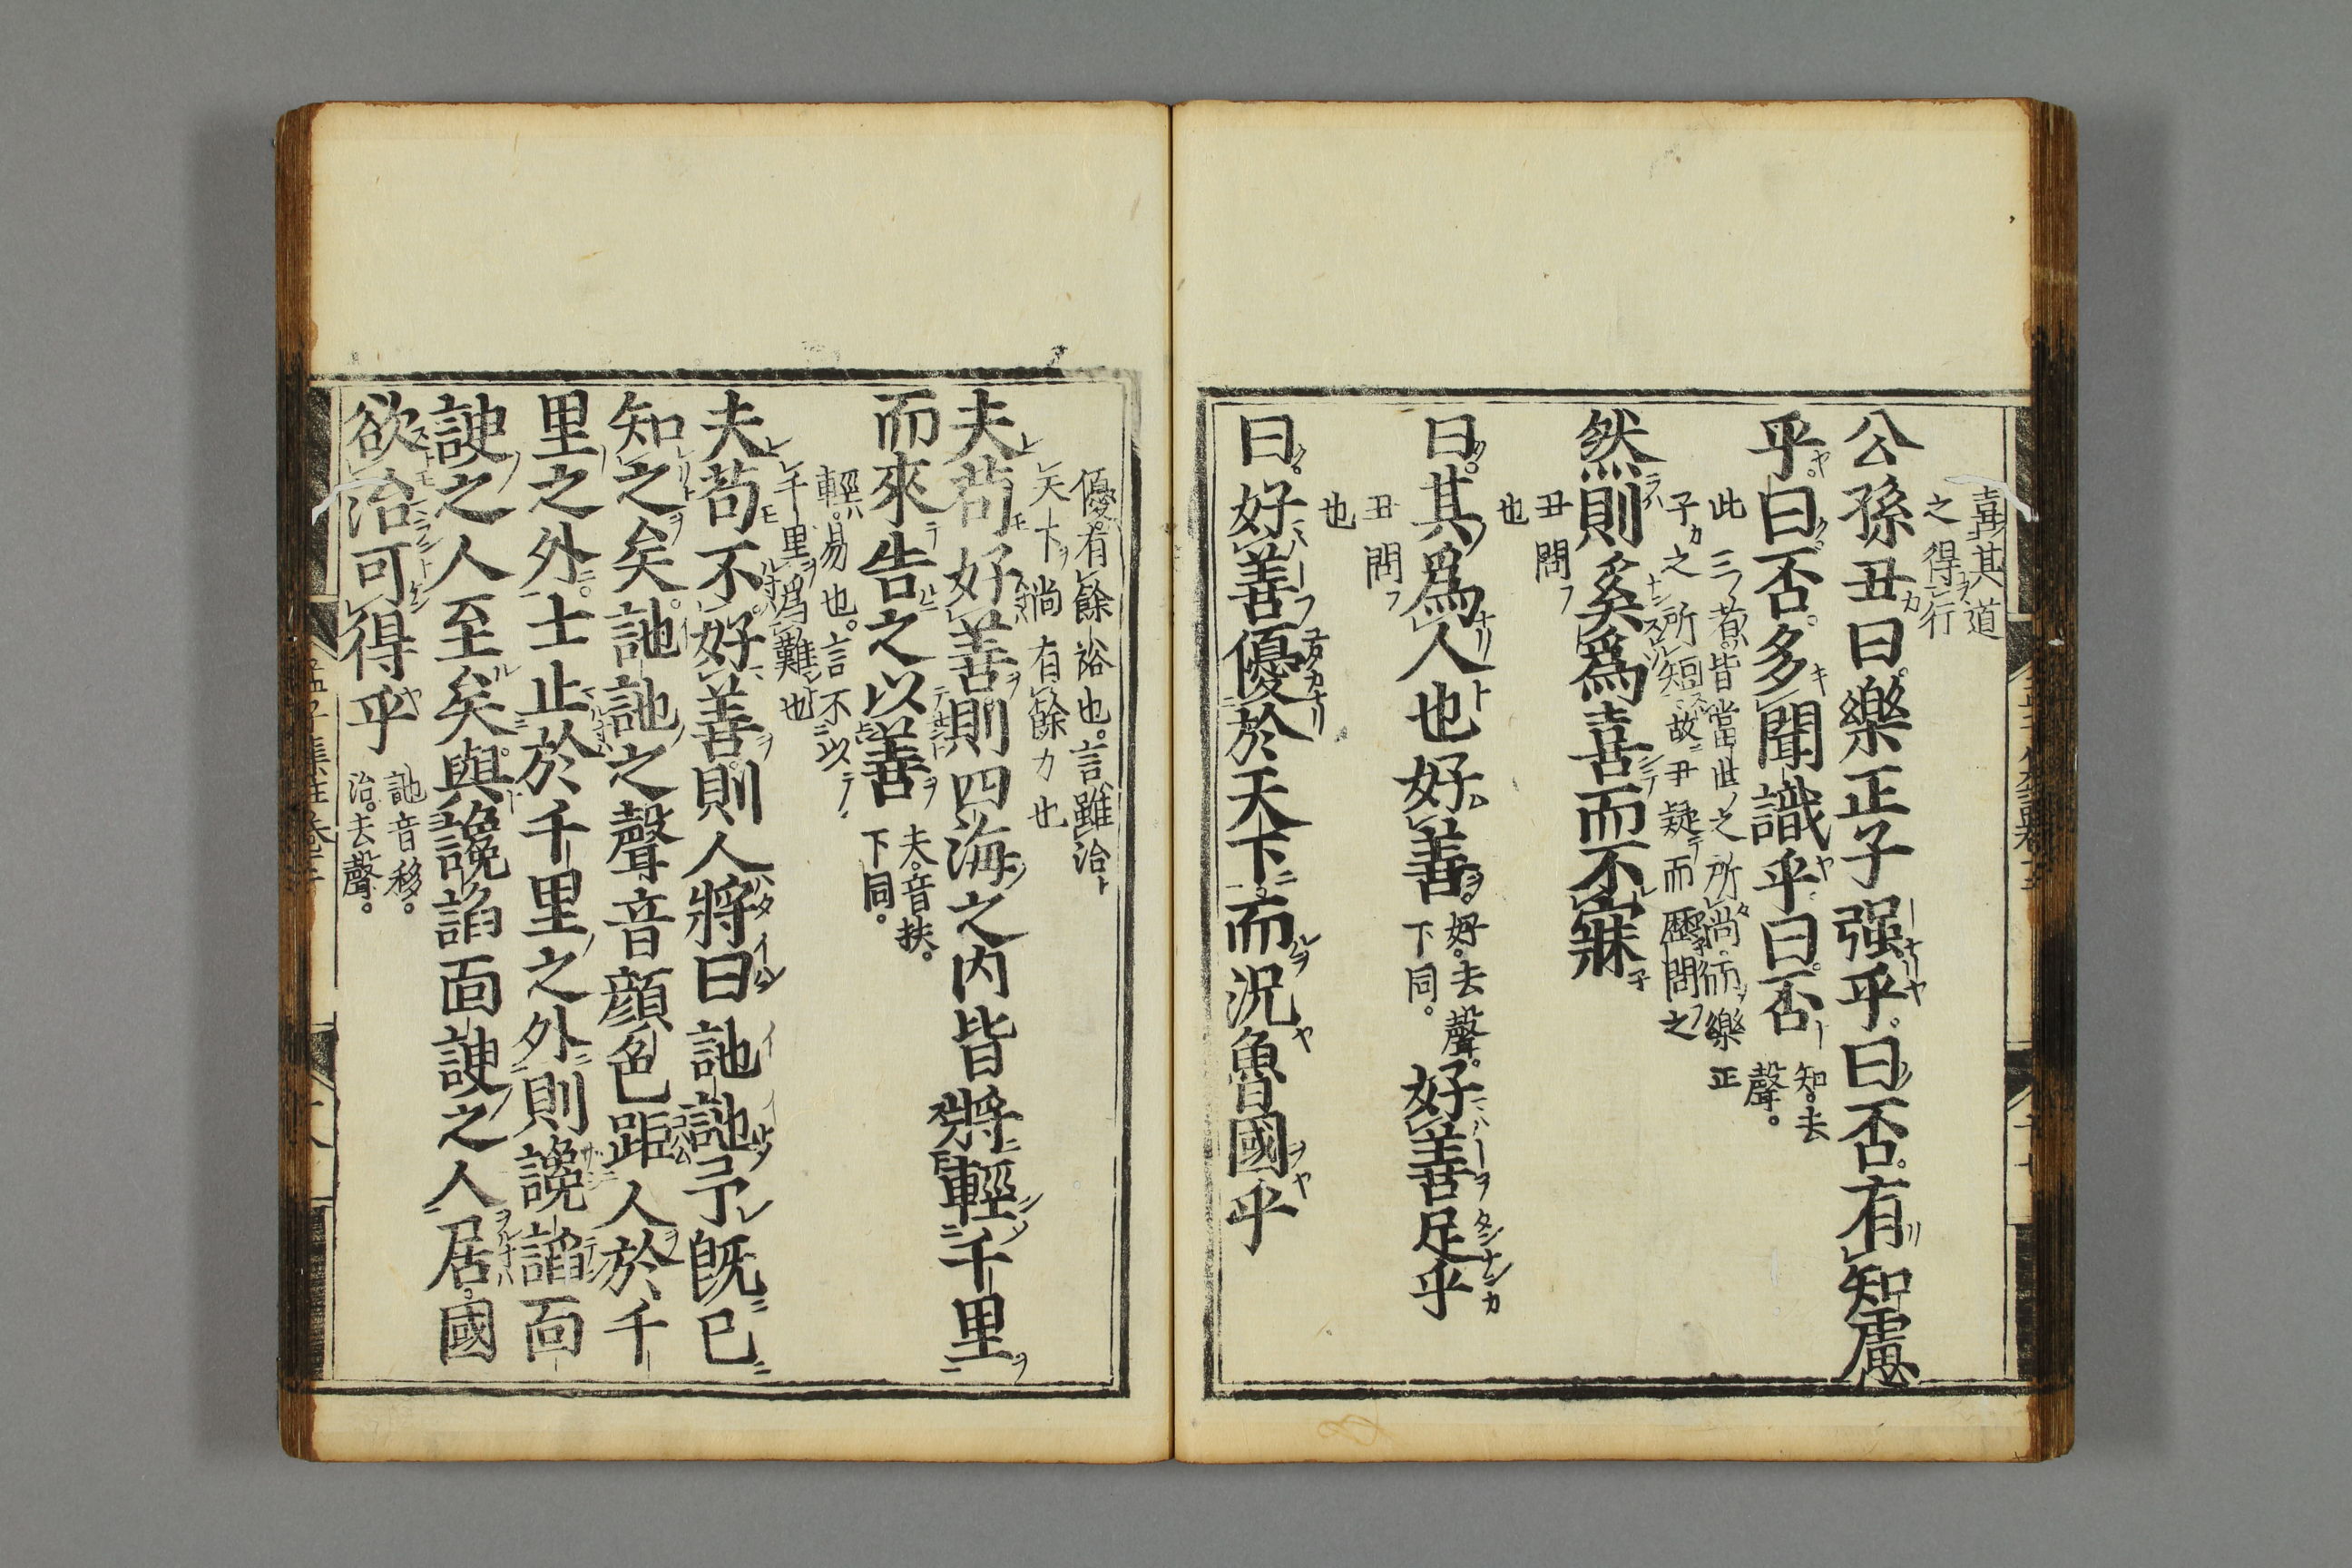 喜其道
之得行
公孫丑曰樂正子强乎曰否有知慮
乎曰否多聞識乎曰否
知去
聲
此三者皆當世之所尚而樂正
子之所短故丑疑而歷問之
然則奚爲喜而不寐
丑問
也
曰其爲人也好善
好去聲
下同
好善足乎
丑問
也
曰好善優於天下而況魯國乎
優有餘裕也言雖治
天下猶有餘力也
夫苟好善則四海之內皆將輕千里
而來告之以善
夫音扶
下同
輕易也言不以
千里爲難也
夫苟不好善則人將曰訑訑予既已
知之矣訑訑之聲音顔色距人於千
里之外士止於千里之外則讒諂面
諛之人至矣與讒諂面諛之人居國
欲治可得乎
訑音移
治去聲